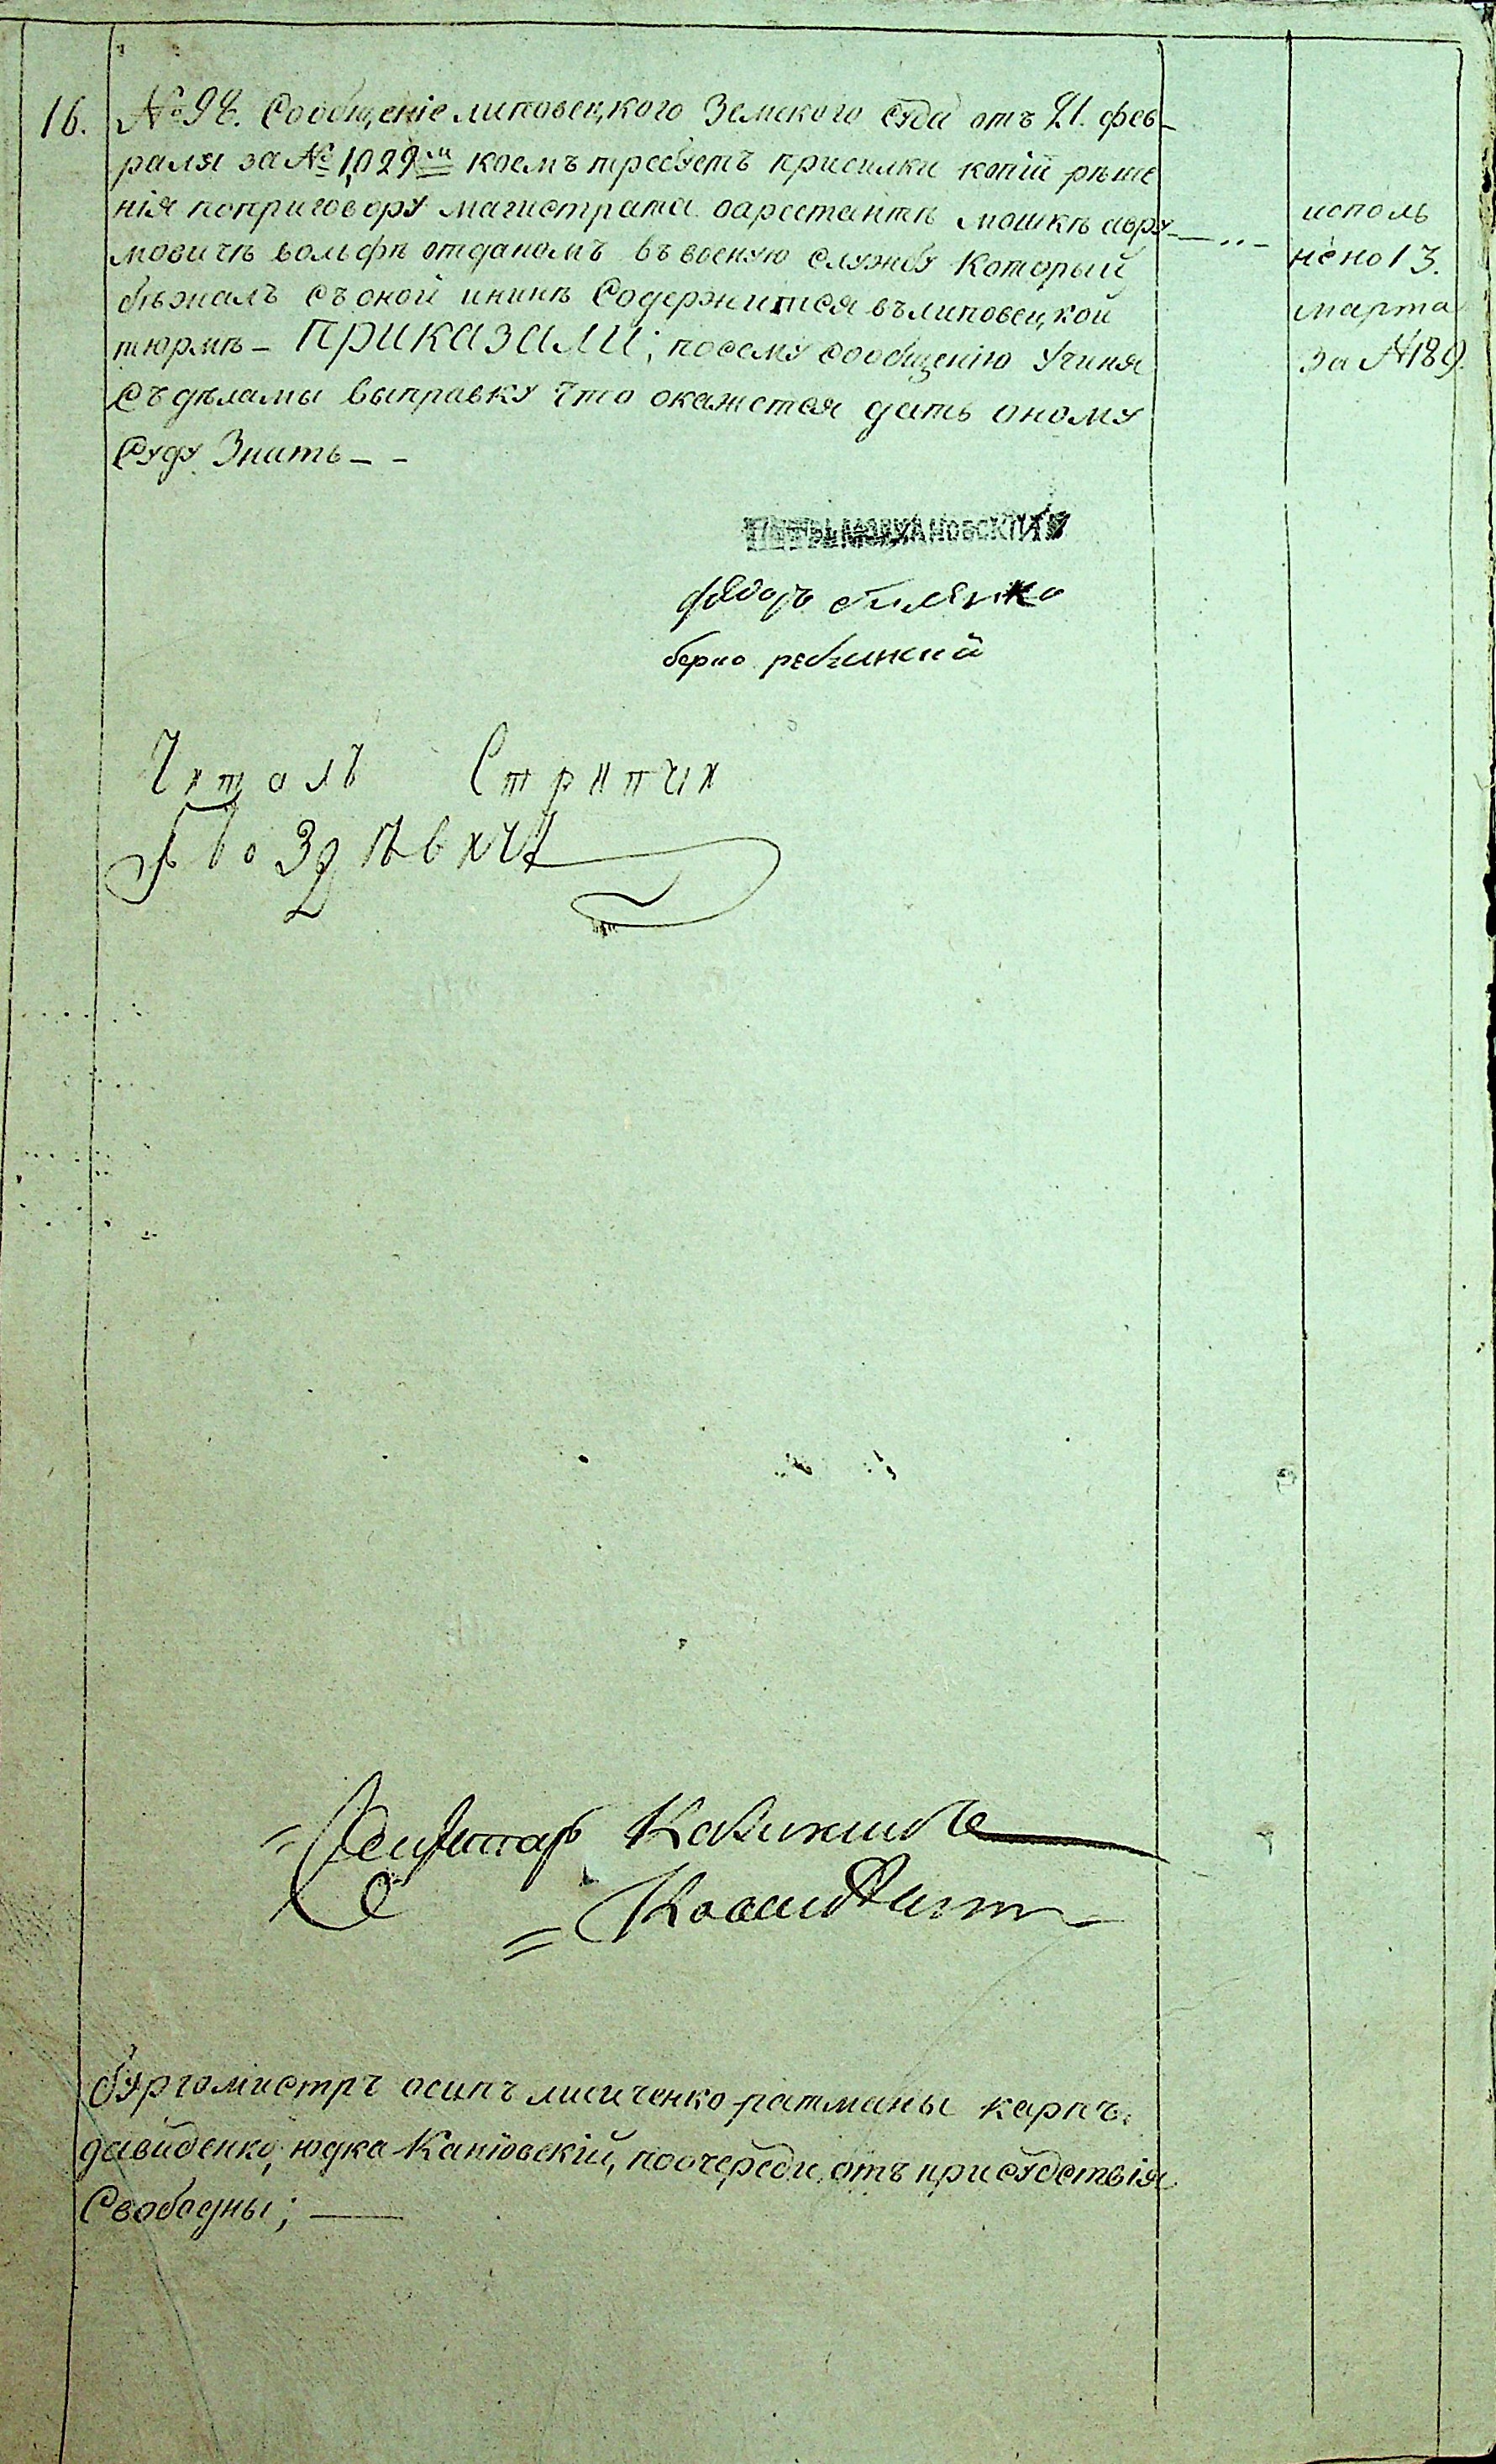 16. №98. Сообщеніе липовецкого Земского суда отъ 21. фев-
раля за № 1,029мъ коемъ требуетъ присилки копій рѣше
нія поприговору магистрата оарестантѣ мошкѣ авру
мовичѣ вольфѣ отданомъ въ военую службу который
бѣжалъ съ оной ининѣ Содержится въ липовецкой
тюрмѣ - ПРИКАЗАЛИ; посему сообщенію учиня
съ дѣламы выправку что окажется дать оному
суду Знать - -
исполь
нено 13.
марта
за №189.
федоръ
берко
Читалъ Стряпчи
Секретарь
бургомистръ осипъ лисиченко ратманы карпъ
давиденко, юдка Каніовскій, поочереди отъ присудствія
Свободны; —